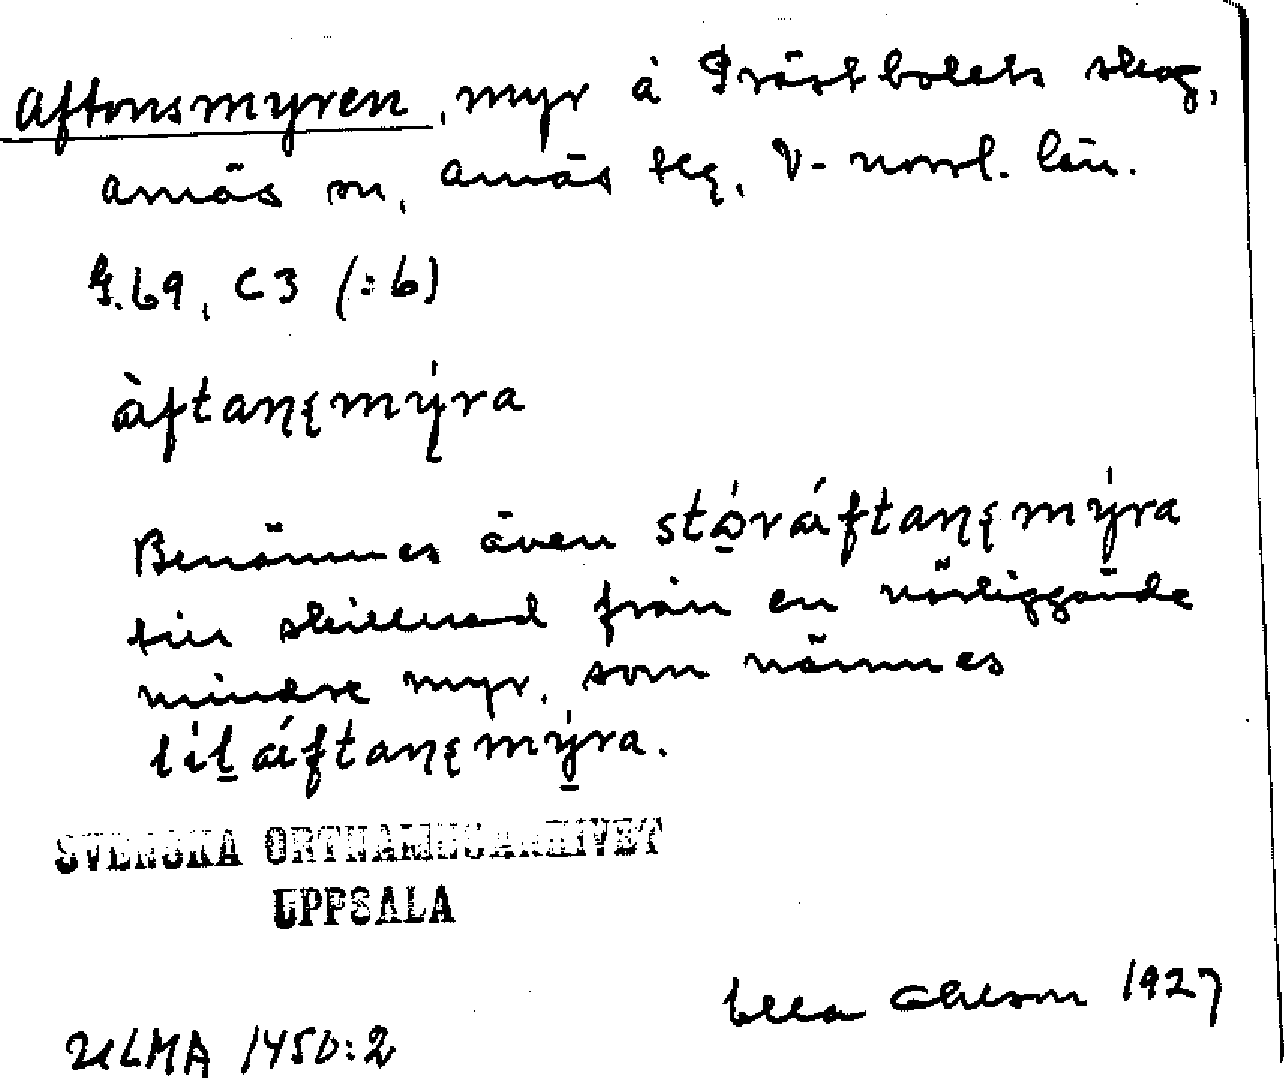 Aftonsmyren, myr å Prästbolets skog,
Arnäs sn, Arnäs tlg, V-norrl. län.
G.69, C3 (:6)
àftaꞑęmy̍ra
Benämnes även stǫ̍ráftaꞑęmy̍ra
till skillnad från en närliggande
mindre myr, som nämnes
lílaáftaꞑęmy̍ra.
SVENSKA ORTNAMNSARKIVET
UPPSALA
Ella Ohlson 1927
ULMA 1450:2